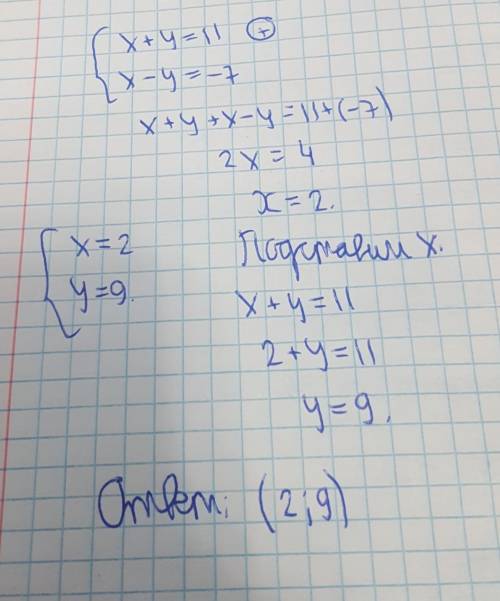 x+y=11 (+)
x-y=-7
x+y+x-y=11+(-7)
2x=4
x=2.
x=2
y=9.
Подставим x.
x+y=11
2+y=11
y=9.
Ответ: (2;9)